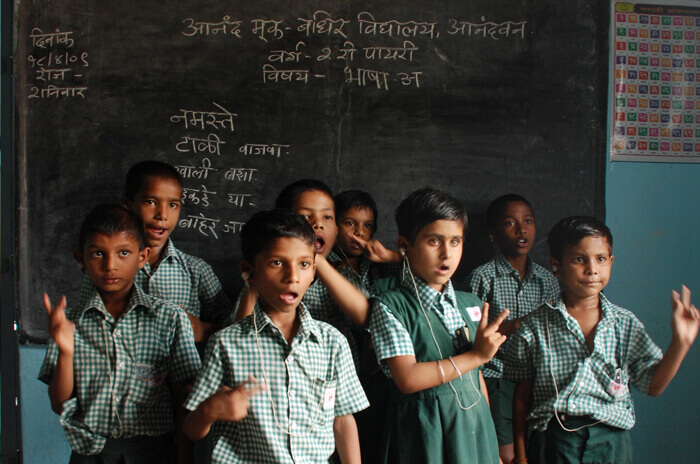 दिनांक
१८/४/०९
रोज -
शनिवार
आनंद मूक - बधिर विद्यालय, आनंदवन.
वर्ग - २ री पायरी
विषय - भाषा अ
नमस्ते
टाळी वाजवा.
खाली बसा.
इकडे या -
बाहेर